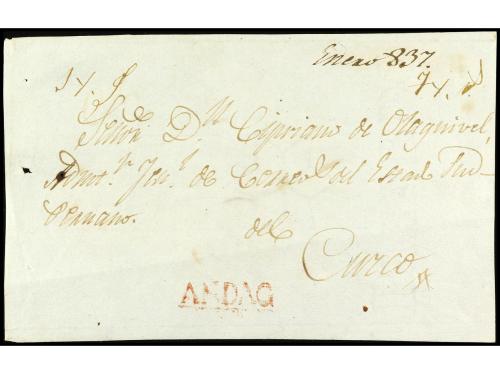 Enero 837.
Señor Dn Cipriano de Olaguivel,
Admor. Jral. de Correos del Estado Sud-
Peruano.
del
Cuzco
ANDAG